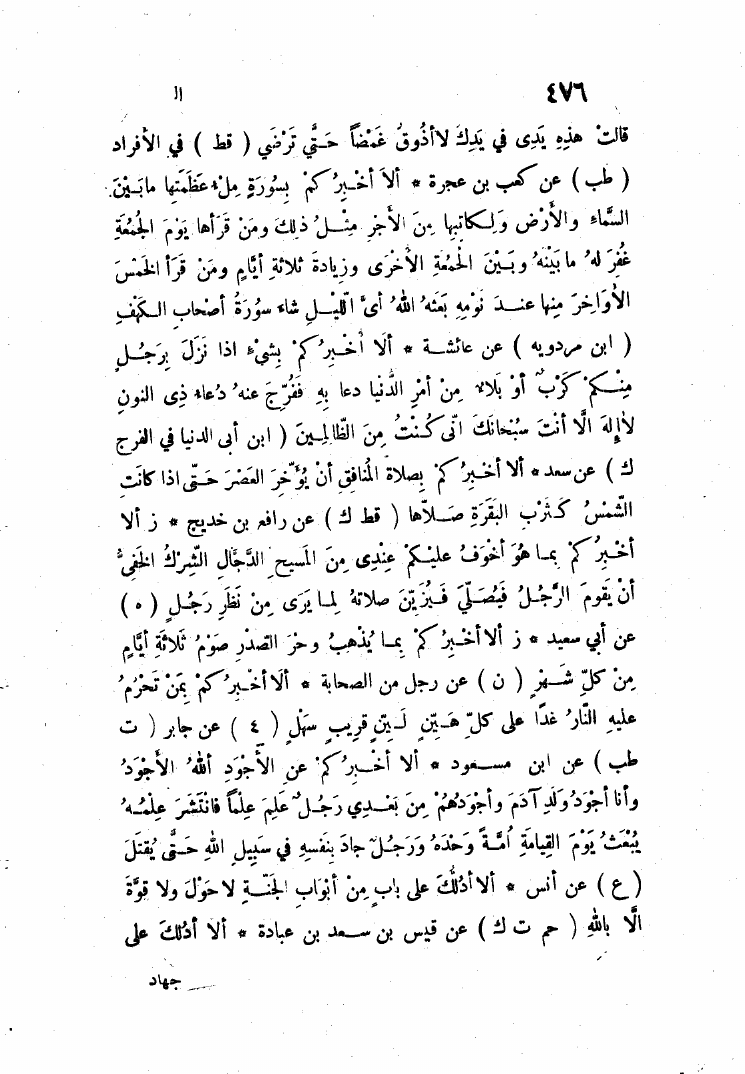 ٤٧٦ ال
قالَتْ هذِهِ يَدِى في يَدِكَ لاَ أذُوقُ غَمْضاً حَتَّي تَرْضَي ( قط ) في الأفراد
( طب ) عن كعب بن عجرة * ألاَ أُخْبِرُكُمْ بِسُورَةٍ مِلْءُ عَظَمَتِها ما بَيْنَ
السَّماءِ والأَرْضِ وَلِكاتِبِها مِنَ الأَجْرِ مِثْلُ ذلِكَ ومَنْ قَرَأها يَوْمَ الجُمُعَةِ
غُفِرَ لهُ ما بَيْنَهُ وبَيْنَ الجُمُعَةِ الأُخْرَى وزِيادَةَ ثَلاثَةِ أيَّامٍ ومَنْ قَرَأ الخَمْسَ
الأَوَاخِرَ مِنها عِنْدَ نَوْمِهِ بَعَثَهُ اللهُ أىَّ اللَّيْلِ شاءَ سُورَةُ أصْحابِ الكَهْفِ
( ابن مردويه ) عن عائشة * ألاَ أُخْبِرُكُمْ بِشَيْءٍ اذا نَزَلَ بِرَجُلٍ
مِنْكُمْ كَرْبٌ أوْ بَلاءٌ مِنْ أمْرِ الدُّنْيا دعا بِهِ فَفُرِّجَ عنهُ دُعاءُ ذِى النونِ
لاَ إِلهَ الَّا أنْتَ سُبْحانَكَ انِّى كُنْتُ مِنَ الظَّالِمِينَ ( ابن أبى الدنيا في الفرج
ك ) عن سعد * ألا أُخْبِرُكُمْ بِصلاةِ المُنافِقِ أنْ يُؤَخِّرَ العَصْرَ حَتَّى اذا كانَتِ
الشَّمْسُ كَثَرْبِ البَقَرَةِ صَلاَّها ( قط ك ) عن رافع بن خديج * ز ألا
أُخْبِرُكُمْ بِما هُوَ أخْوَفُ عليْكُمْ عِنْدِى مِنَ المَسيحِ الدَّجَّالِ الشِّرْكُ الخَفِيُّ
أنْ يَقُومَ الرَّجُلُ فَيُصَلِّيَ فَيُزَيِّنَ صلاتهُ لِما يَرَى مِنْ نَظَرِ رَجُلٍ ( ه )
عن أبي سعيد * ز ألا أُخْبِرُكُمْ بِما يُذْهِبُ وحَرَ الصّدْرِ صَوْمُ ثَلاثَةِ أيَّامٍ
مِنْ كلِّ شَهْرٍ ( ن ) عن رجل من الصحابة * ألَا أُخْبِرُكُمْ بِمَنْ تَحْرُمُ
عليهِ النَّارُ غدًا على كلِّ هَيِّنٍ لَيِّنٍ قَرِيبٍ سَهْلٍ ( ع ) عن جابر ( ت
طب ) عن ابن مسعود * ألا أُخْبِرُكُمْ عنِ الأَجْوَدِ أللهُ الأَجْوَدُ
وأنا أجْوَدُ وَلَدِ آدَمَ وأجْوَدُهُمْ مِنْ بَعْدِي رَجُلٌ عَلِمَ عِلْماً فانْتَشَرَ عِلْمُهُ
يُبْعَثُ يَوْمَ القِيامَةِ اُمَّةً وَحْدَهُ وَرَجُلٌ جادَ بِنَفْسِهِ في سَبِيلِ اللهِ حَتَّى يُقْتَلَ
( ع ) عن أنس * ألا أدُلُّكَ على بابٍ مِنْ أبْوَابِ الجَنَّةِ لا حَوْلَ ولا قوَّةَ
الَّا بِاللهِ ( حم ت ك ) عن قيس بن سعد بن عبادة * ألا أدُلكَ على
جهاد